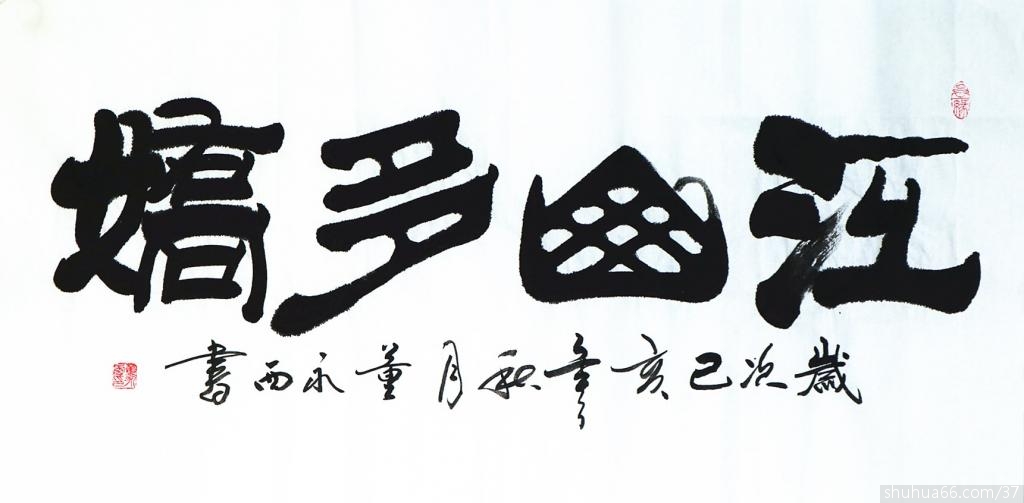 江山多嬌
歲次己亥年秋月董永西書
shuhua66.com/37